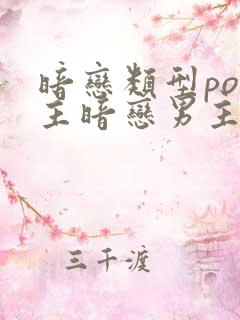 暗戀類型po
主暗戀男主
三千渡